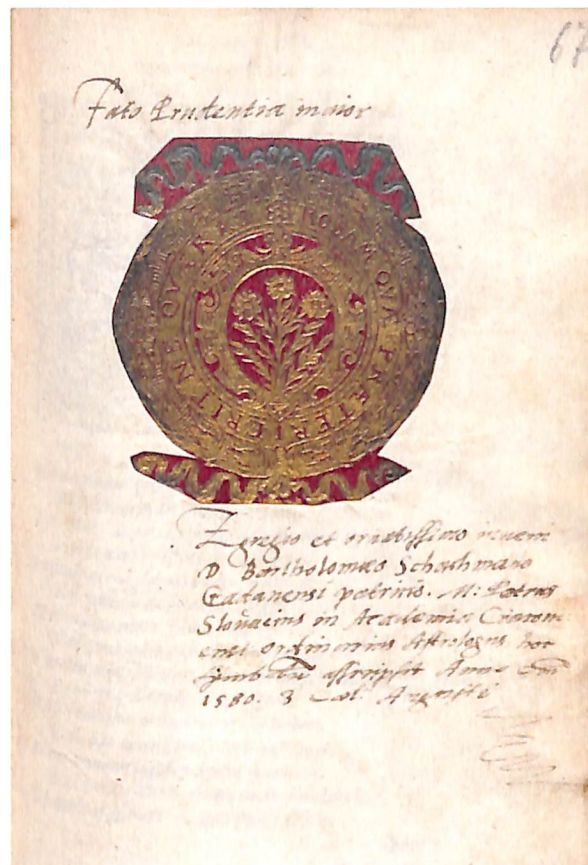 67
Fato Prudentia maior
HORAM QVAE PRAETERIIT NE QVAERAS
Egregio et ornatissimo iuveni
D Bartholomaeo Schachmano
Gedanensi patritio. M: Petrus
Slovacius in Academia Cracovi
ensi ordinarius Astrologus hoc
symbolū asscripsit Anno
1580. 3 Cal. Augusti